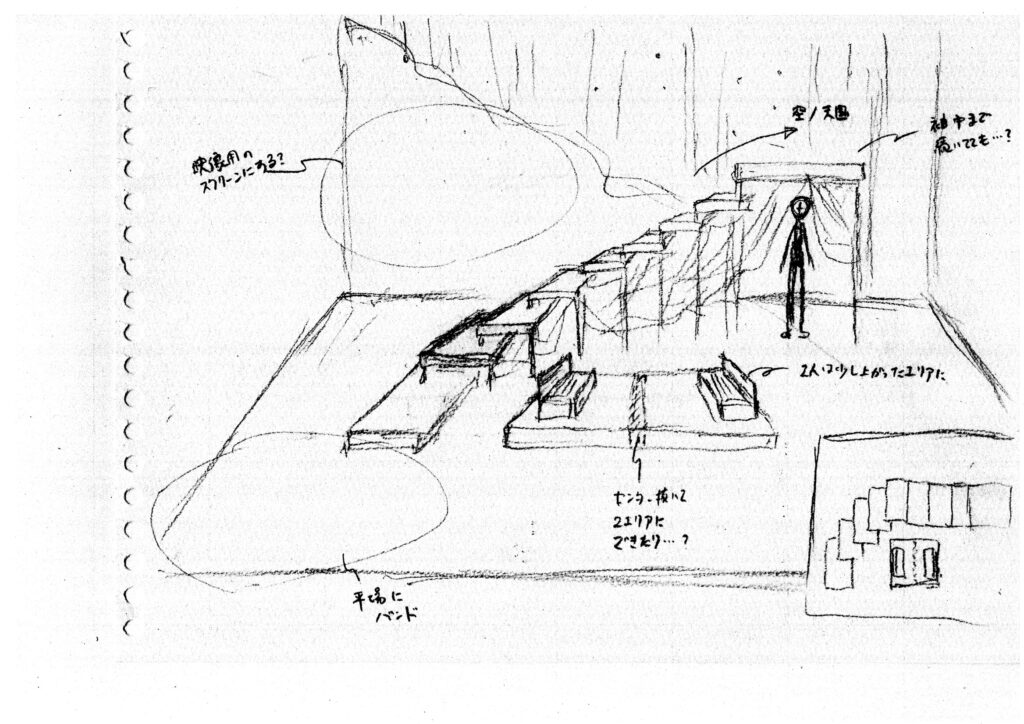 空/天国
袖中まで
続いてても…?
映像用の
スクリーンにある?
2人は少し上がったエリアに
センター抜いて
2エリアに
できたり…?
平場に
バンド